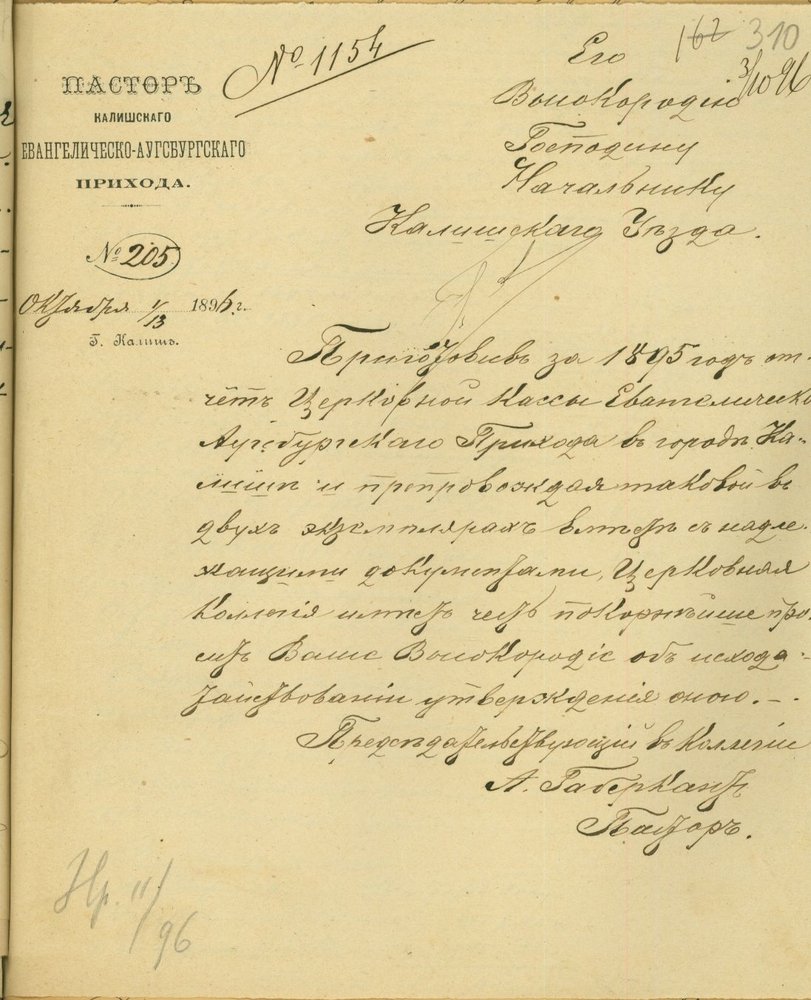 162 310
№ 1154
3/10 96
ПАСТОРЪ
КАЛИШСКАГО
ЕВАНГЕЛИЧЕСКО-АУГСБУРГСКАГО
ПРИХОДА.
№ 205
Октября 1/13 1896 г.
Г. Калишъ.
Его
Высокородію
Господину
Начальнику
Калишскаго Уѣзда.
Приготовивъ за 1895 годъ от-
четъ Церковной Кассы Евангелическо
Аугсбургскаго Прихода въ городѣ Ка-
лишѣ и препровождая таковой въ
двухъ экземплярахъ вмѣстѣ съ надле-
жащими документами, Церковная
Коллегія имѣетъ честь покорнѣйше про-
сить Ваше Высокородіе объ исхода-
тайствованіи утвержденія оного. –
Предсѣдательствующій въ Коллегіи
А. Габеркантъ
Пасторъ.
11/96